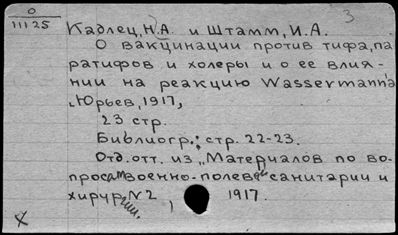 О
11125
3
Кадлец, Н.А. и Штамм, И.А.
О вакцинации против тифа, па
ратифов и холеры и о ее влия-
нии на реакцию Wassermann'a
Юрьев, 1917,
23 стр.
Библиогр.: стр. 22-23.
Отд. отт. из „Материалов по во-
просам военно-полевой санитарии и
хирургии, N2, 1917.
X